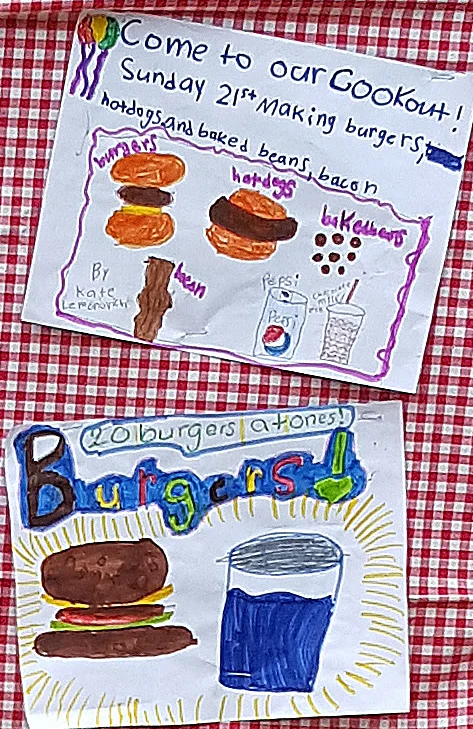 Come to our Cookout!
Sunday 21st Making burgers,
hotdogs and baked beans, bacon
burgers
hotdogs
bakedbeans
By
Kate
bean
PEPSI
Pepsi
Chocolate
milk
20 burgers at ones!
Burgers!